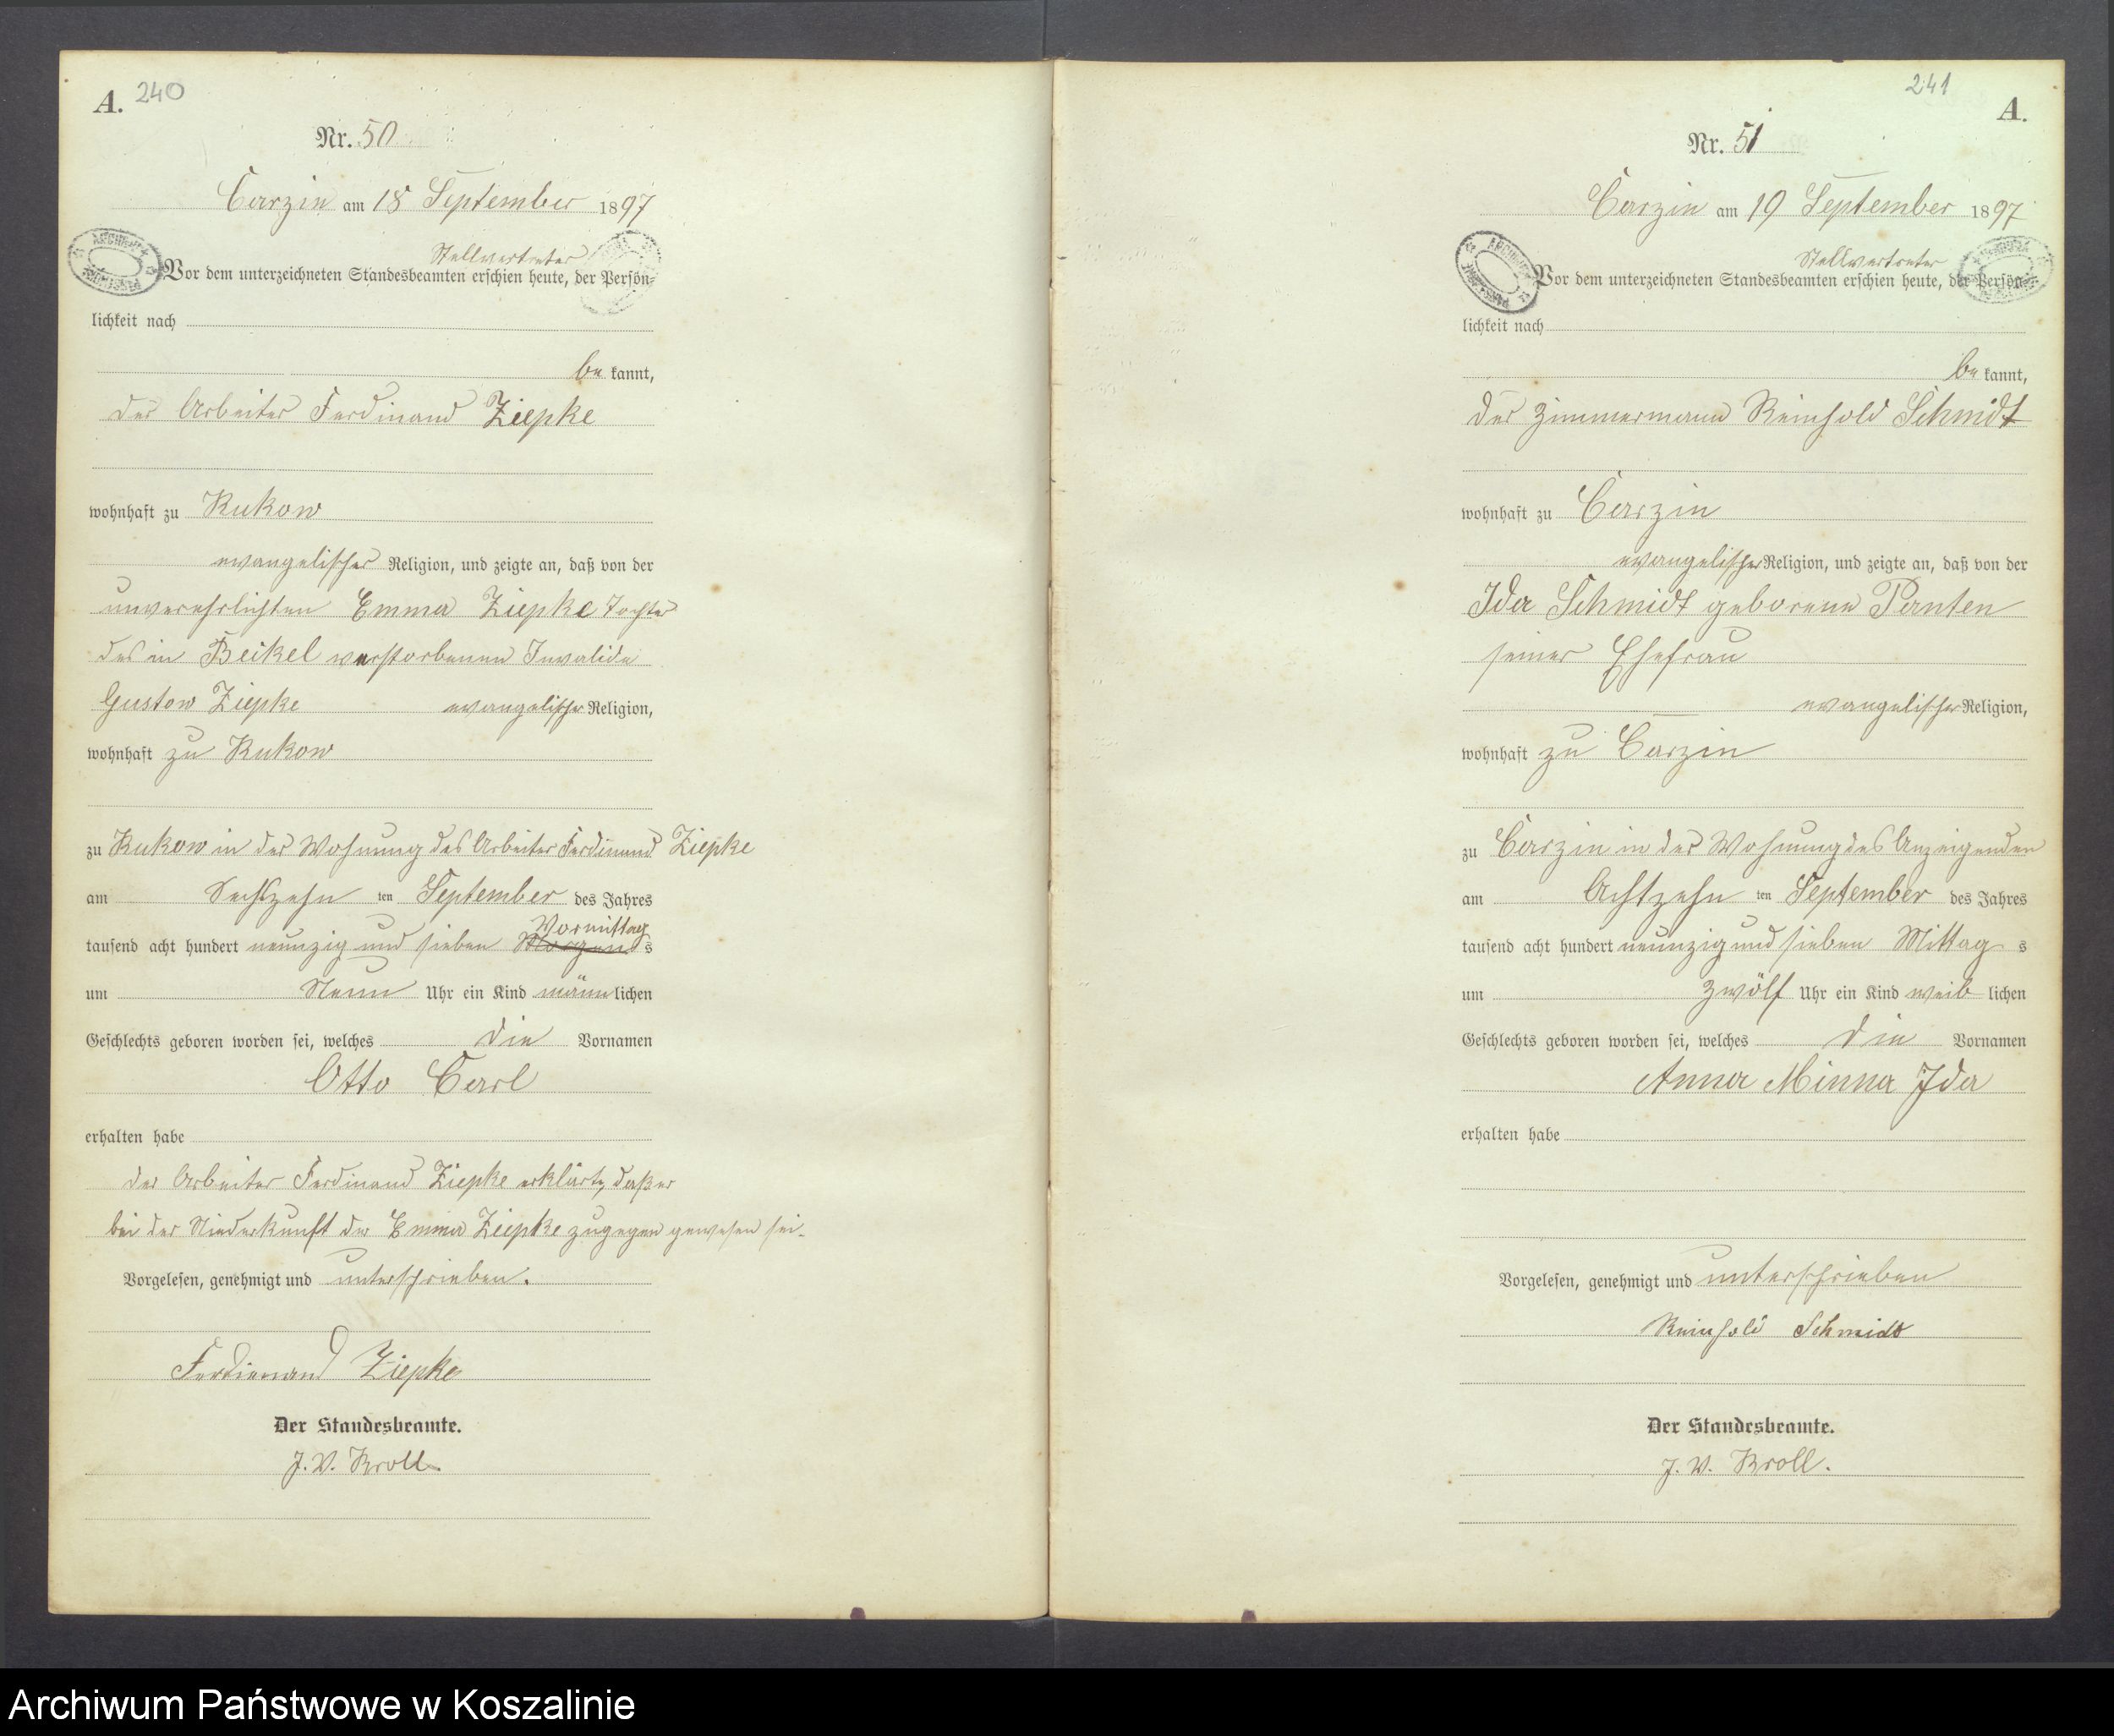 A. 240
Nr. 50
Carzin am 18 September 1897
Stellvertreter
Vor dem unterzeichneten Standesbeamten erschien heute, der Persön-
lichkeit nach
be kannt,
der Arbeiter Ferdinand Ziepke
wohnhaft zu Kukow
evangelischer Religion, und zeigte an, daß von der
unverehelichten Emma Ziepke Tochter
des in Beikel verstorbenen Invalide
Gustow Ziepke evangelischer Religion,
wohnhaft zu Kukow
zu Kukow in der Wohnung des Arbeiter Ferdinand Ziepke
am Sechszehn ten September des Jahres
Vormittag
tausend acht hundert neunzig und sieben Morgen s
um Neun Uhr ein Kind männlichen
Geschlechts geboren worden sei, welches die Vornamen
Otto Carl
erhalten habe
der Arbeiter Ferdinand Ziepke erklärte, daß er
bei der Niederkunft der Emma Ziepke zugegen gewesen sei.
Vorgelesen, genehmigt und unterschrieben.
Ferdienand Ziepke
Der Standesbeamte.
J. V. Kroll
241
A.
Nr. 51
Carzin am 19 September 1897
Stellvertreter
Vor dem unterzeichneten Standesbeamten erschien heute, der Persön-
lichkeit nach
be kannt,
der Zimmermann Reinhold Schmidt
wohnhaft zu Carzin
evangelischer Religion, und zeigte an, daß von der
Ida Schmidt geborene Panten
seiner Ehefrau
evangelischer Religion,
wohnhaft zu Carzin
zu Carzin in der Wohnung des Anzeigenden
am Achtzehn ten September des Jahres
tausend acht hundert neunzig und sieben Mittag s
um zwölf Uhr ein Kind weib lichen
Geschlechts geboren worden sei, welches die Vornamen
Anna Minna Ida
erhalten habe
Vorgelesen, genehmigt und unterschrieben
Reinhold Schmidt
Der Standesbeamte.
J. V. Kroll.
Archiwum Państwowe w Koszalinie